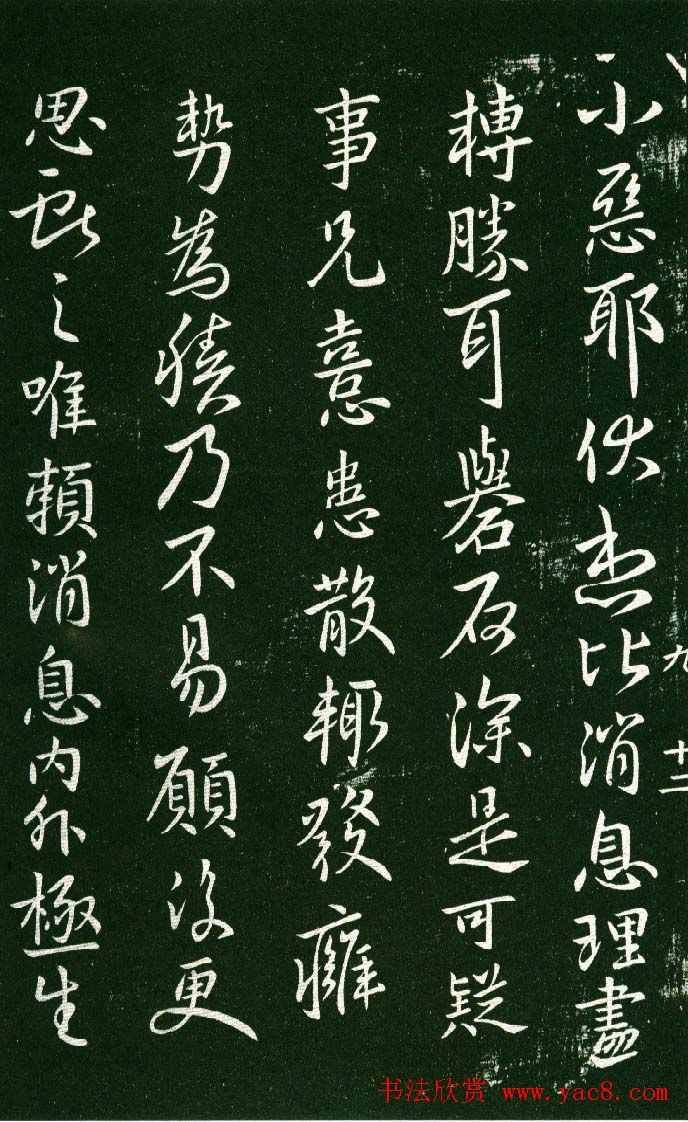 小惡耶伏想比消息理盡
九
十二
轉勝耳礜石深是可疑
事兄憙患散輒發癰
勢為積乃不易願復更
思之唯賴消息內外極生
书法欣赏 www.yac8.com